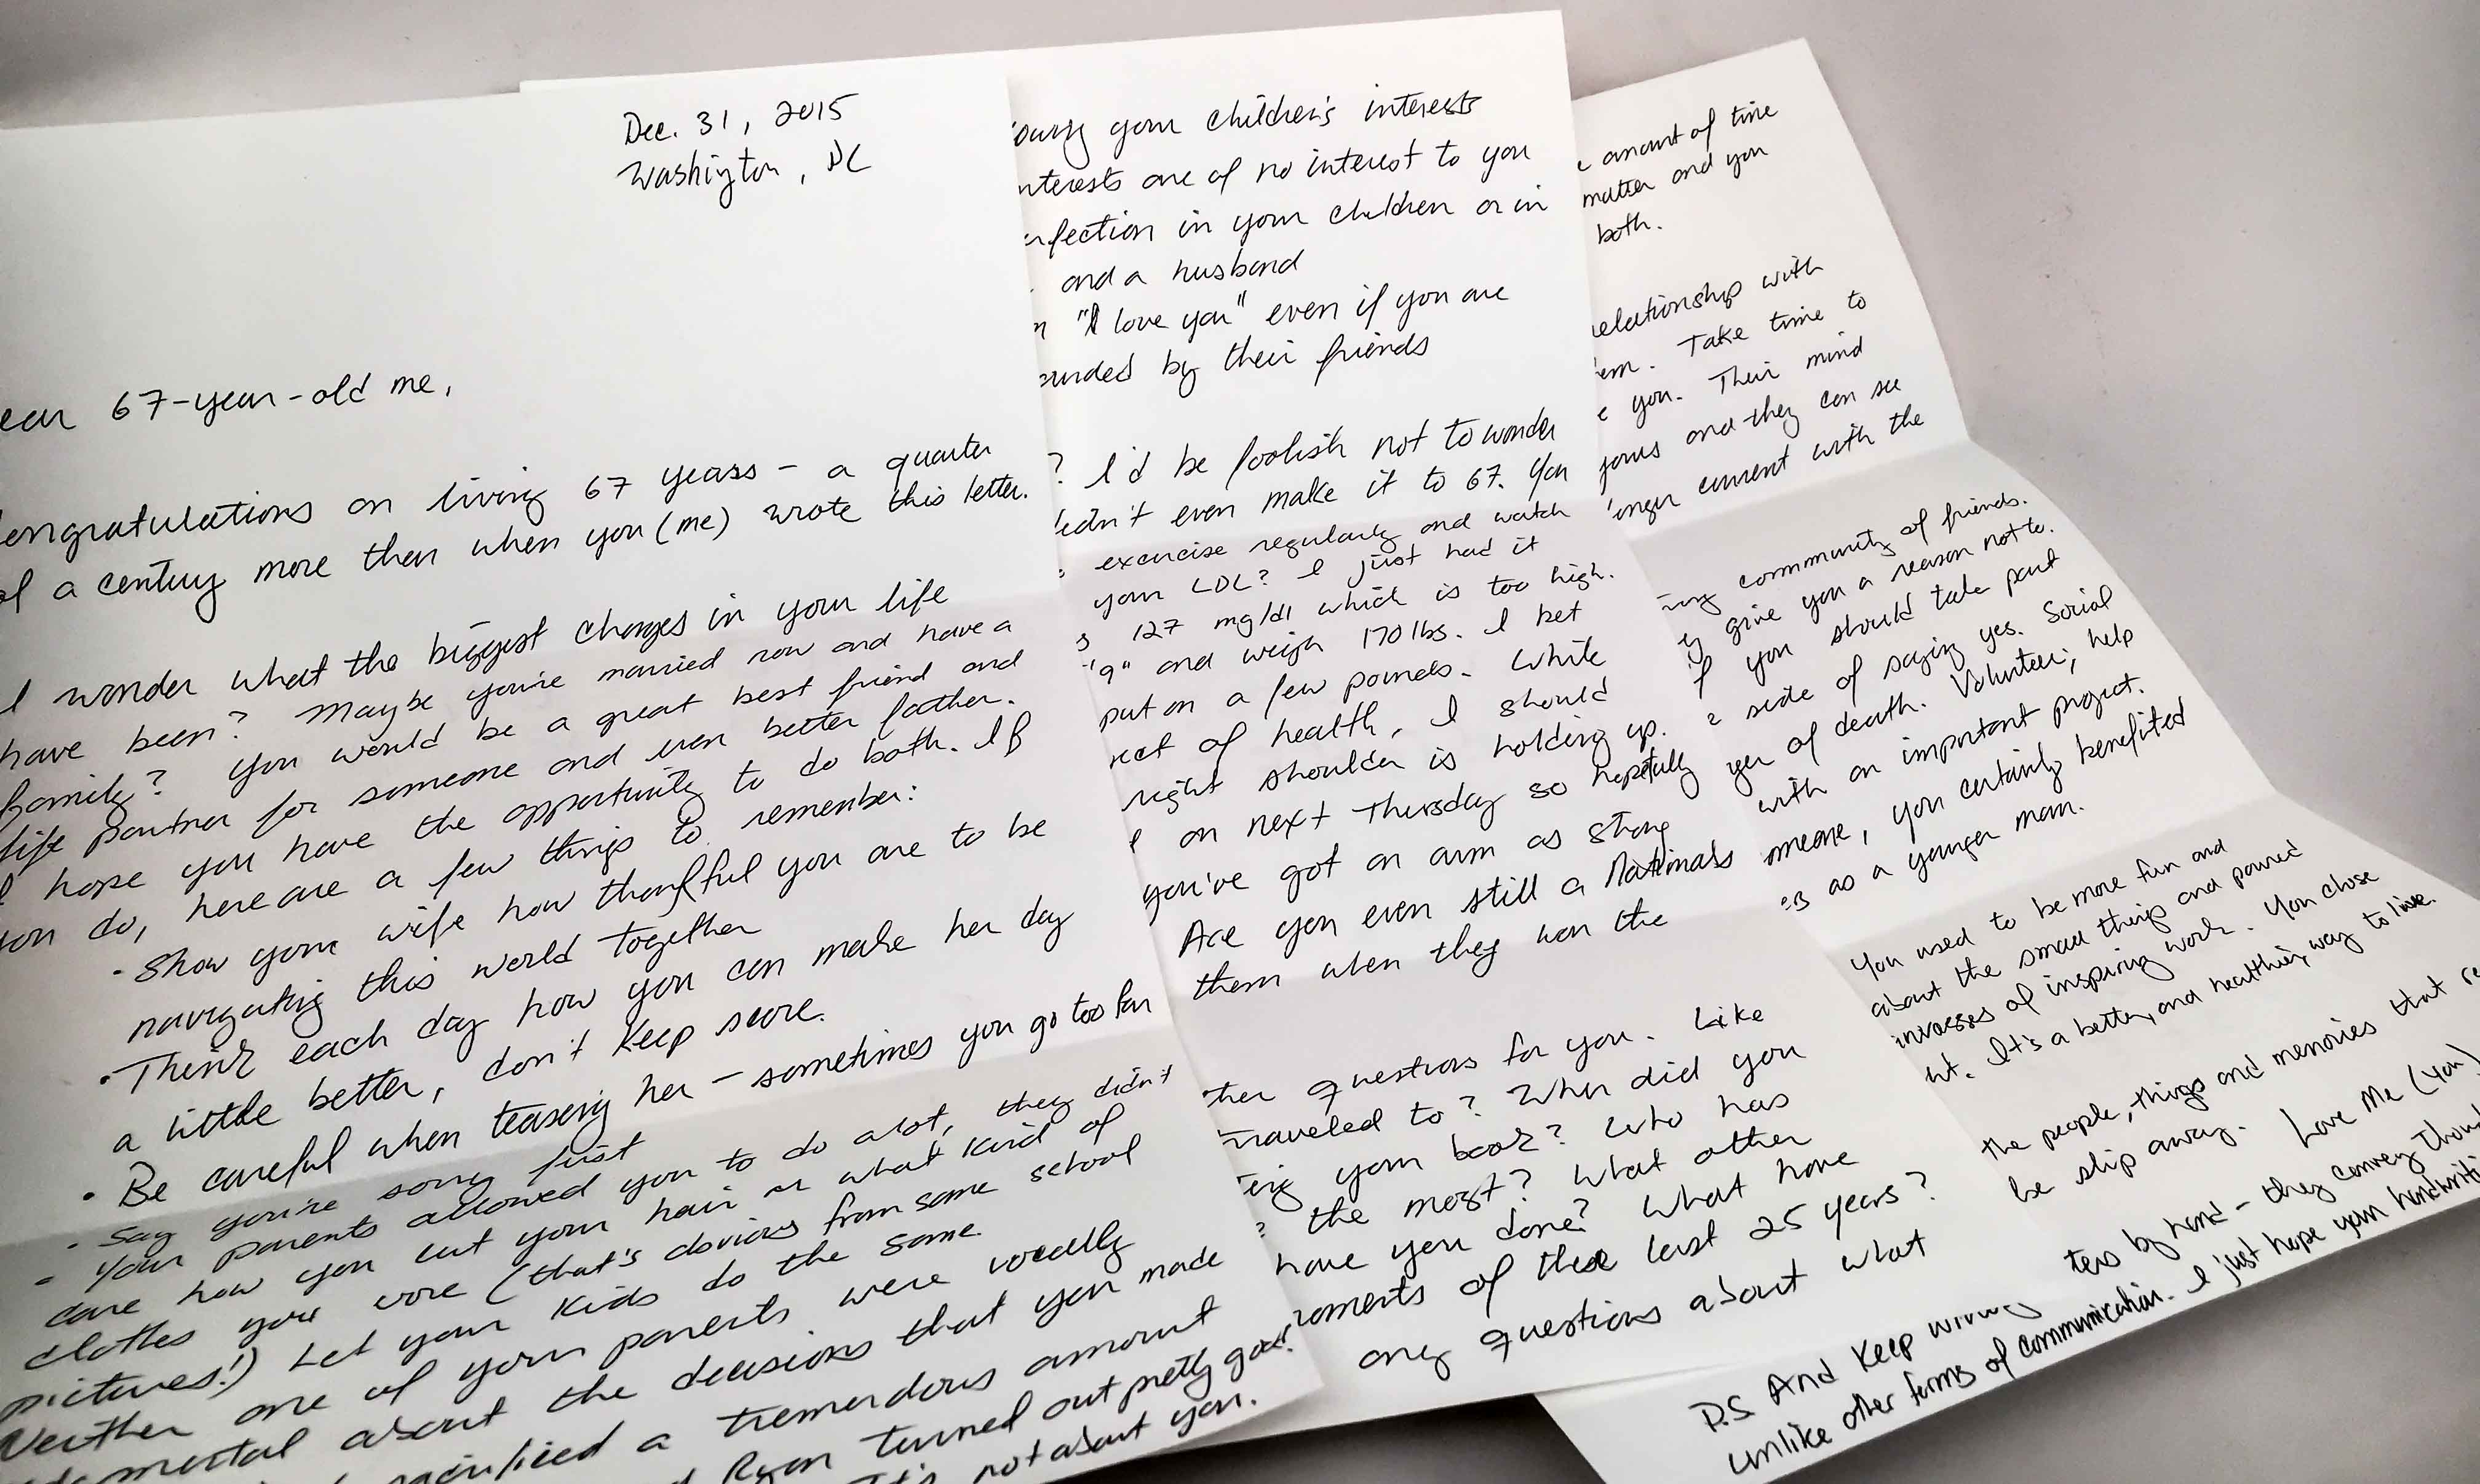 Dec. 31, 2015
Washington, DC
ear 67-year-old me,
ongratulations on living 67 years - a quarter
of a century more than when you (me) wrote this letter.
I wonder what the biggest changes in your life
have been? Maybe you're married now and have a
family? You would be a great best friend and
life partner for someone and even better father.
I hope you have the opportunity to do both. If
you do, here are a few things to remember:
• Show your wife how thankful you are to be
navigating this world together
• Think each day how you can make her day
a little better, don't keep score.
• Be careful when teasing her - sometimes you go too far
• Say you're sorry first
- Your parents allowed you to do alot, they didn't
care how you cut your hair or what kind of
clothes you wore (that's obvious from some school
pictures!) Let your kids do the same.
Neither one of your parents were vocally
mental about the decisions that you made
sacrificed a tremendous amount
Ryan turned out pretty good!
It's not about you.
your children's interests
nterests are of no interest to you
rfection in your children or in
and a husband
"I love you" even if you are
ounded by their friends
? I'd be foolish not to wonder
didn't even make it to 67. You
exercise regularly and watch
your LDL? I just had it
s 127 mg/dl which is too high.
'9" and weigh 170 lbs. I bet
put on a few pounds. While
ect of health, I should
right shoulder is holding up.
on next Thursday so hopefully
you've got an arm as strong
Are you even still a Nationals
them when they won the
ther questions for you. Like
traveled to? When did you
ing your book? Who has
? the most? What other
have you done? What have
moments of these last 25 years?
any questions about what
amount of time
matter and you
both.
relationship with
em. Take time to
e you. Their mind
and they can see
onger current with the
ing community of friends.
give you a reason not to.
f you should take part
e side of saying yes. Social
ger of death. Volunteer, help
with an important project.
omeone, you certainly benefited
es as a younger man.
You used to be more fun and
about the small things and poured
of inspiring work. You chose
ht. It's a better, and healthier, way to live.
the people, things and memories that
be slip away. Love Me (you)
P.S And keep writing
ters by hand - they convey
unlike other forms of communication. I just hope your handwriti